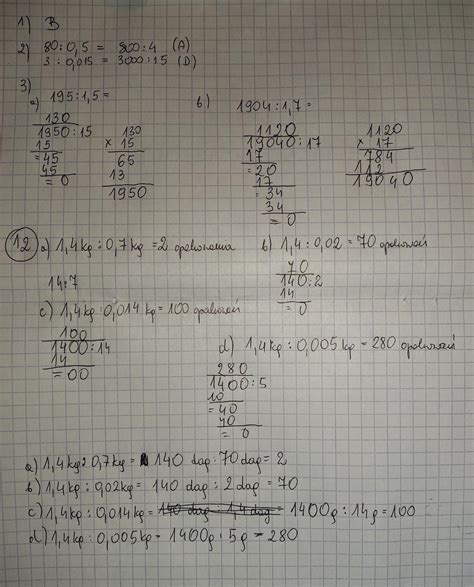 1) B
2) 80 : 0,5 = 800 : 4 (A)
3 : 0,015 = 3000 : 15 (D)
3)
a) 195 : 1,5 =
130
1950 : 15
15
= 45
45
= 0
130
x 15
65
13
1950
b) 1904 : 1,7 =
1120
19040 : 17
17
= 20
17
= 34
34
= 0
1120
x 17
784
112
19040
12 a) 1,4 kg : 0,7 kg = 2 opakowania
14 : 7
b) 1,4 : 0,02 = 70 opakowań
70
140 : 2
14
= 0
c) 1,4 kg : 0,014 kg = 100 opakowań
100
1400 : 14
14
= 00
d) 1,4 kg : 0,005 kg = 280 opakowań
280
1400 : 5
10
= 40
40
= 0
a) 1,4 kg : 0,7 kg = 140 dag : 70 dag = 2
b) 1,4 kg : 0,02 kg = 140 dag : 2 dag = 70
c) 1,4 kg : 0,014 kg = 140 dag : 1,4 dag 1400 g : 14 g = 100
d) 1,4 kg : 0,005 kg = 1400 g : 5 g = 280